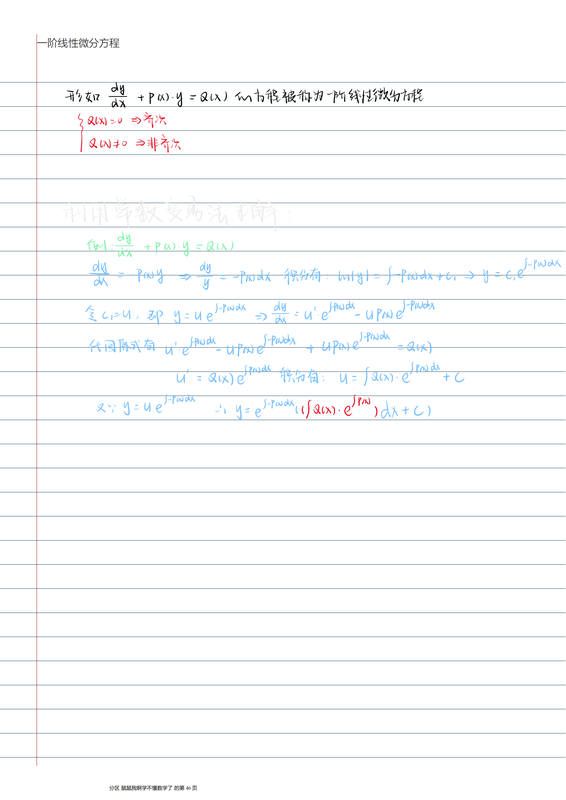 一阶线性微分方程
形如 dy/dx + P(x)·y = Q(x) 的方程被称为一阶线性微分方程
Q(x)=0 ⇒ 齐次
Q(x)≠0 ⇒ 非齐次
利用常数变易法求解:
例: dy/dx + P(x)·y = Q(x)
dy/dx = P(x)y ⇒ dy/y = -P(x)dx 积分有: ln|y| = ∫-P(x)dx + C₁ ⇒ y = C₁e^∫-P(x)dx
令C₁=u, 即 y = u e^∫-P(x)dx ⇒ dy/dx = u' e^∫-P(x)dx - uP(x)e^∫-P(x)dx
代回原式有 u'·e^∫-P(x)dx - uP(x)e^∫-P(x)dx + uP(x)e^∫-P(x)dx = Q(x)
u' = Q(x)e^∫P(x)dx 积分有: u = ∫Q(x)·e^∫P(x)dx + C
又∵ y = u e^∫-P(x)dx ∴ y = e^∫-P(x)dx((∫Q(x)·e^∫P(x))dx + C)
分区 鼠鼠我啊学不懂数学了 的第 46 页